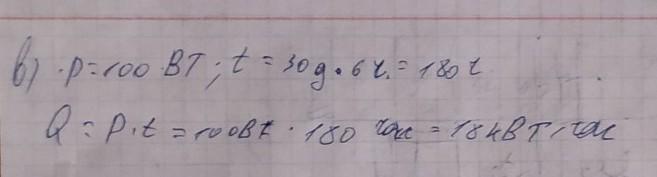 в) p = 100 ВТ; t = 30д • 6ч. = 180ч
Q = P.t = 100Вт • 180 час = 18кВт, час